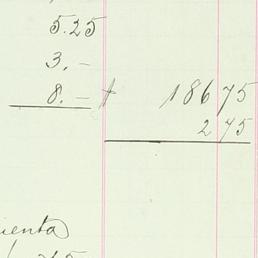 5.25
3.–
8.– † 186 75
2 75
ienta